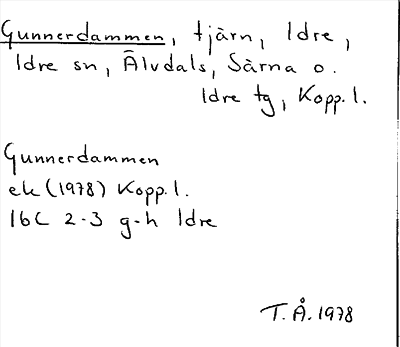 Gunnerdammen, tjärn, Idre,
Idre sn, Älvdals, Särna o.
Idre tg, Kopp. l.
Gunnerdammen
ek (1978) Kopp. l.
16C 2-3 g-h Idre
T. Å. 1978